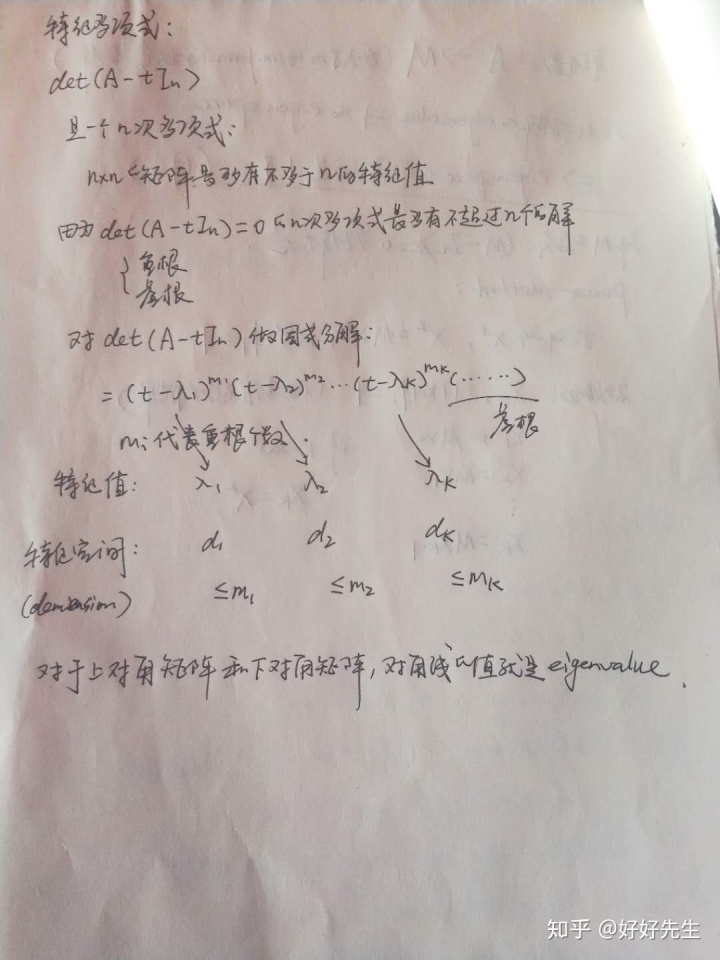 特征多项式:
det(A-tIn)
是一个n次多项式:
n×n的矩阵最多有不多于n的特征值
因为det(A-tIn)=0的n次多项式最多有不超过n个的解
{重根
虚根
对det(A-tIn)做因式分解:
=(t-λ₁)^m₁(t-λ₂)^m₂…(t-λK)^mK(……)
虚根
mi代表重根个数.
特征值: λ₁ λ₂ λK
特征空间: d₁ d₂ dK
(demension) ≤m₁ ≤m₂ ≤mK
对于上对角矩阵和下对角矩阵,对角线的值就是eigenvalue.
知乎 @好好先生